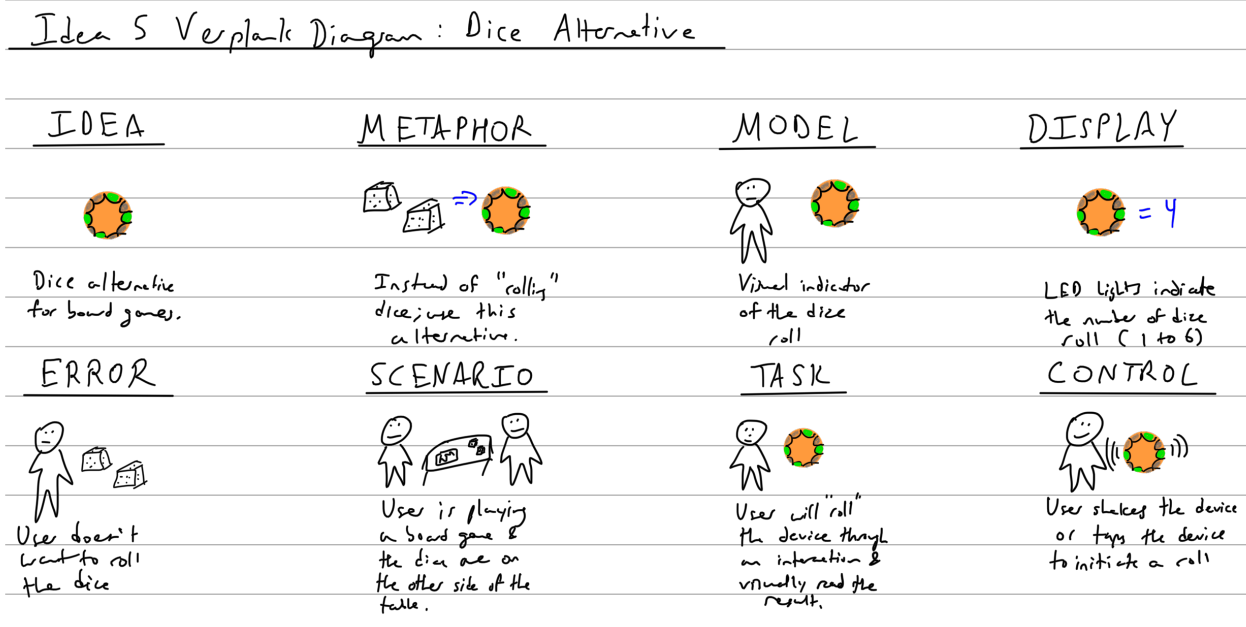 Idea 5 Verplank Diagram: Dice Alternative
IDEA
Dice alternative
for board games.
METAPHOR
Instead of "rolling"
dice; use this
alternative.
MODEL
Visual indicator
of the dice
roll
DISPLAY
= 4
LED lights indicate
the number of dice
roll (1 to 6)
ERROR
User doesn't
want to roll
the dice
SCENARIO
User is playing
a board game &
the dice are on
the other side of the
table.
TASK
User will "roll"
the device through
an interaction &
visually read the
result.
CONTROL
User shakes the device
or taps the device
to initiate a roll